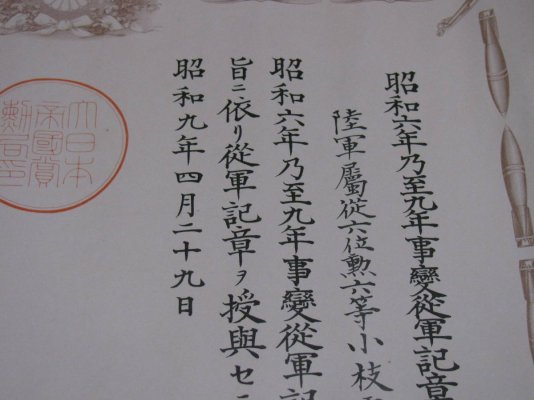 昭和六年乃至九年事變從軍記章
陸軍屬從六位勲六等小枝
昭和六年乃至九年事變從軍記
旨ニ依リ從軍記章ヲ授與セ
昭和九年四月二十九日
大日本
帝國賞
勲局印